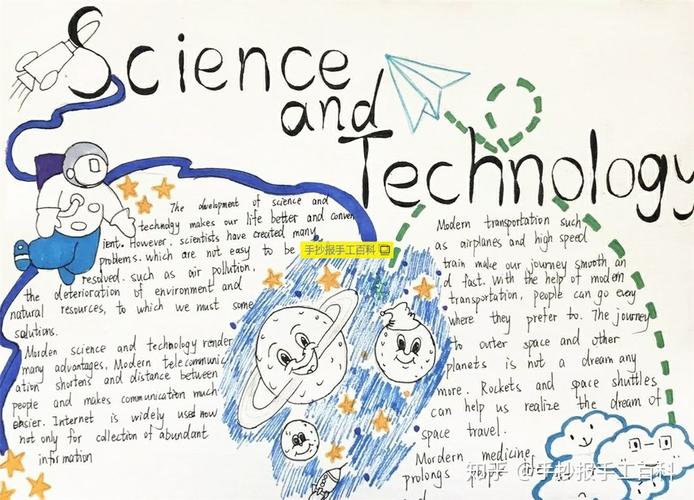 Science
and
Technology
The development of science and
technology makes our life better and conven
ient. However, scientists have created many
problems. which are not easy to be
resolved. such as air pollution,
the deterioration of environment and
natural resources, to which we must some
solutions.
Morden science and technology render
many advantages, Modern telecommunic
ation shortens and distance between
people and makes communication much
easier. Internet is widely used now
not only for collection of abundant
information
手抄报手工百科
Modern transportation such
as airplanes and high speed
train make our journey smooth an
d fast. With the help of modern
transportation, people can go every
where they prefer to. The journey
to outer space and other
planets is not a dream any
more. Rockets and space shuttles
can help us realize the dream of
space travel.
Mordern medicine
prolongs
知乎 @手抄报手工百科